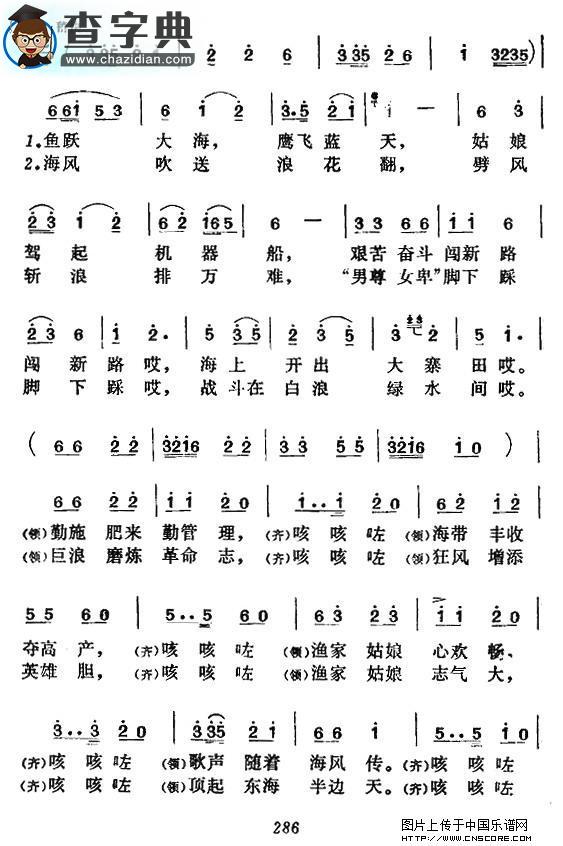 查字典
www.chazidian.com
2 2 6 | 3 35 2 6 | 1 3235)
6 61 5 3 | 6 1 2 | 3.5 2 1 | 1 — | 6 3
1.鱼跃 大海, 鹰飞蓝天, 姑娘
2.海风 吹送 浪花翻, 劈风
2 3 1 2 | 6 2 165 | 6 — | 3 3 6 6 | 1 1 6
驾起 机器船, 艰苦奋斗闯新路
斩浪 排万难, “男尊女卑”脚下踩
2 3 6 | 1 2. | 5 3 5 | 2 3 5 | 3 2 | 5 1.
闯新路哎, 海上开出大寨田哎。
脚下踩哎, 战斗在白浪绿水间哎。
( 6 6 2 2 | 3216 2 2 | 3 3 5 5 | 3216 1 0 )
6 6 2 2 | 1 1 2 0 | 1..1 2 0 | 6 2 1 2
(领)勤施肥来勤管理, (齐)咳咳咗 (领)海带丰收
(领)巨浪磨炼革命志, (齐)咳咳咗 (领)狂风增添
5 5 6 0 | 5..5 6 0 | 6 3 2 3 | 1 1 2 0
夺高产, (齐)咳咳咗 (领)渔家姑娘心欢畅、
英雄胆, (齐)咳咳咗 (领)渔家姑娘志气大,
3..3 2 0 | 3 35 2 1 | 6 6 1 | 5..5 1 0
(齐)咳咳咗 (领)歌声随着海风传。(齐)咳咳咗
(齐)咳咳咗 (领)顶起东海半边天。(齐)咳咳咗
286
图片上传于中国乐谱网
HTTP://WWW.CNSCORE.COM